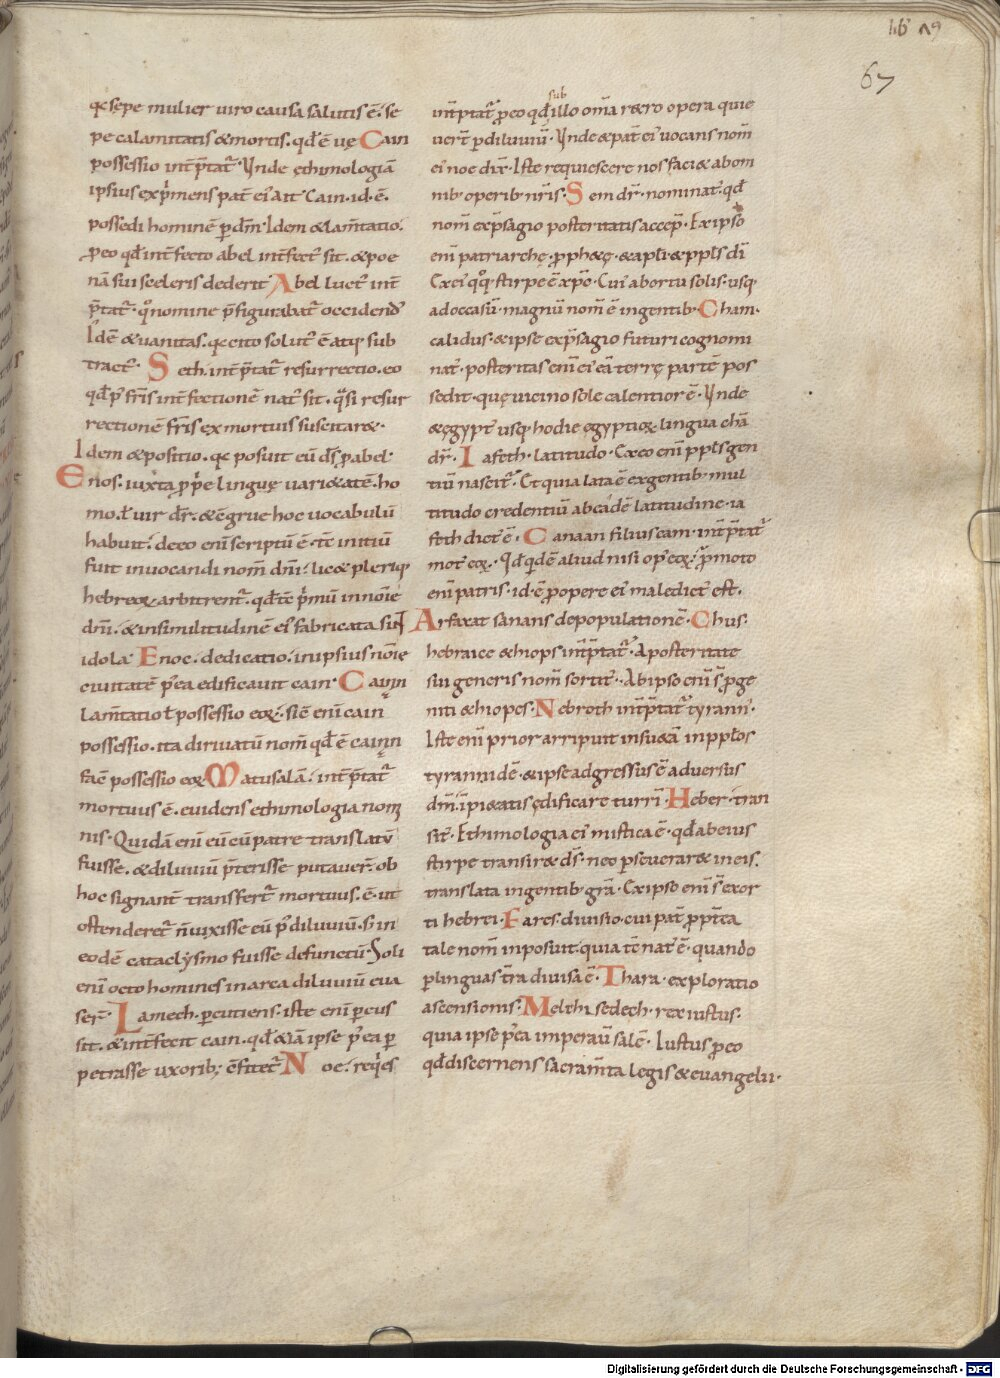 lib̄ ʌ9
67
qꝫ sepe mulier uiro causa salutis ē. se
pe calamitatis & mortis. qđ ē uę Cain
possessio int̄p̄tat᷑. Ynde ethimologiā
ipsius exp̄mens pat̄ ei᷒ ait Cain. id. ē.
possedi hominē p̱ dm̄. Idem & lam̄tatio.
p̱ eo qđ int̄fecto abel int̄fect᷒ sit. & poe
nā sui sceleris dederit Abel luct᷒ int̄
p̄tat᷑. qͦ nomine p̄figurabat᷑ occidend᷒
Idē & uanitas. qꝫ cito solut᷒ ē atqꝫ sub
tract᷒. Seth. int̄p̄tat᷑ resurrectio. eo
qđ p᷒ fr̄is int̄fectionē nat᷒ sit. qͣsi resur
rectionē fr̄is ex mortuis suscitar&.
Idem & positio. qꝫ posuit eū d̄s p̱ abel.
Enos. iuxta p̱p̄e linguę uari&atē. ho
mo. ł uir dr̄. & ēgrue hoc uocabulū
habuit. de eo eni᷒ scriptū ē. tc̄ initiū
fuit inuocandi nom̄ dn̄i. lic& pleriqꝫ
hebreoꝝ arbitrent᷑. qđ tc̄ p̄mū in noīe
dn̄i. & in similitudinē ei᷒ fabricata sint
idola. Enoc. dedicatio. in ipsius noīe
ciuitatē p᷒ea edificauit cain. Cainan
lam̄tatio ł possessio eoꝝ. sic̄ eni᷒ cain
possessio. ita diriuatū nom̄ qđ ē cainan
facē possessio eoꝝ Matusalā. int̄p̄tat᷑
mortuus ē. euidens ethimologia nom̄
nis. Quidā eni᷒ eū cū patre translatū
fuisse. & diluuiū p̄terisse putauer̄. ob
hoc signant̄ transfert᷑ mortuus. ē. ut
ostenderet᷑ n̄ uixisse eū p᷒ diluuiū. s; in
eodē cataclysmo fuisse defunctū. Soli
eni᷒ octo homines in arca diluuiū eua
ser̄. Lamech. p̱cutiens. iste eni᷒ p̱cus
sit. & int̄fecit cain. qđ & iā ipse p᷒ea p̱
petrasse uxorib; c̄fitet᷑ Noe. reqͥes
int̄ptat᷑ p̱ eo qđ sub illo om̄a r&ro opera quie
uer̄t p̱ diluuiū. Ynde & pat̄ ei᷒ uocans nom̄
ei᷒ noe dix̄. Iste requiescere nos faci& ab om
nib; operib; nr̄is. Sem dr̄. nominat᷒. qđ
nom̄ ex p̄sagio posteritatis accep̄. Ex ipso
eni᷒ patriarchę. p̱ph&ę. & apl̄i. & ppl̄s dī
Ex ei᷒ qͦqꝫ stirpe ē xp̄c. Cui᷒ ab ortu solis. usqꝫ
ad occasū. magnū nom̄ ē in gentib; Cham.
calidus. & ipse ex p̄sagio futuri cognomi
nat᷒. posteritas eni᷒ ei᷒ eā terrę partē pos
sedit. quę uicino sole calentior ē. Ynde
& ęgypt᷒ usqꝫ hodie ęgyptioꝝ lingua chā
dr̄. Iafeth. latitudo. Ex eo eni᷒ ppl̄s gen
tiū nascit᷑. Et quia lata ē ex gentib; mul
titudo credentiū ab eadē latitudine ia
feth dict᷒ ē. Canaan filius cam. int̄p̄tat᷑
mot᷒ eoꝝ. Qđ qͥdē aliud nisi op᷒ eoꝝ. p̱ moto
eni᷒ patris. id. ē p̱ opere ei᷒ maledict᷒ est.
Arfaxat sanans depopulationē. Chus.
hebraice & hiops int̄p̄tat᷑. A posteritate
sui generis nom̄ sortit᷒. Ab ipso eni᷒ s̄ p̱ge
niti & hiopes. Nebroth int̄p̄tat᷑ tyrann᷒.
Iste eni᷒ prior arripuit insu&ā in ppl̄os
tyrannidē. & ipse adgressus ē aduersus
dm̄. ī pi&atis ędificare turrī. Heber. tran
sit᷒. Ethimologia ei᷒ mistica ē. qđ ab eius
stirpe transir& d̄s. nec p̱seuerar& in eis.
translata in gentib; grā. Ex ipso eni᷒ s̄ exor
ti hebrei. Fares. diuisio. cui pat̄ ppt̄ea
tale nom̄ inposuit. quia tc̄ nat᷒ ē. quando
p̱ linguas t̄ra diuisa ē. Thara. exploratio
ascensionis. Melchisedech. rex iustus.
quia ipse p᷒ea imperauit salē. Iustus p̱ eo
qđ discernens sacram̄ta legis & euangelii.
Digitalisierung gefördert durch die Deutsche Forschungsgemeinschaft - DFG